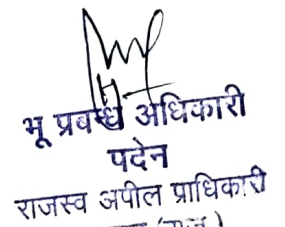 भू प्रबन्ध अधिकारी
पदेन
राजस्व अपील प्राधिकारी